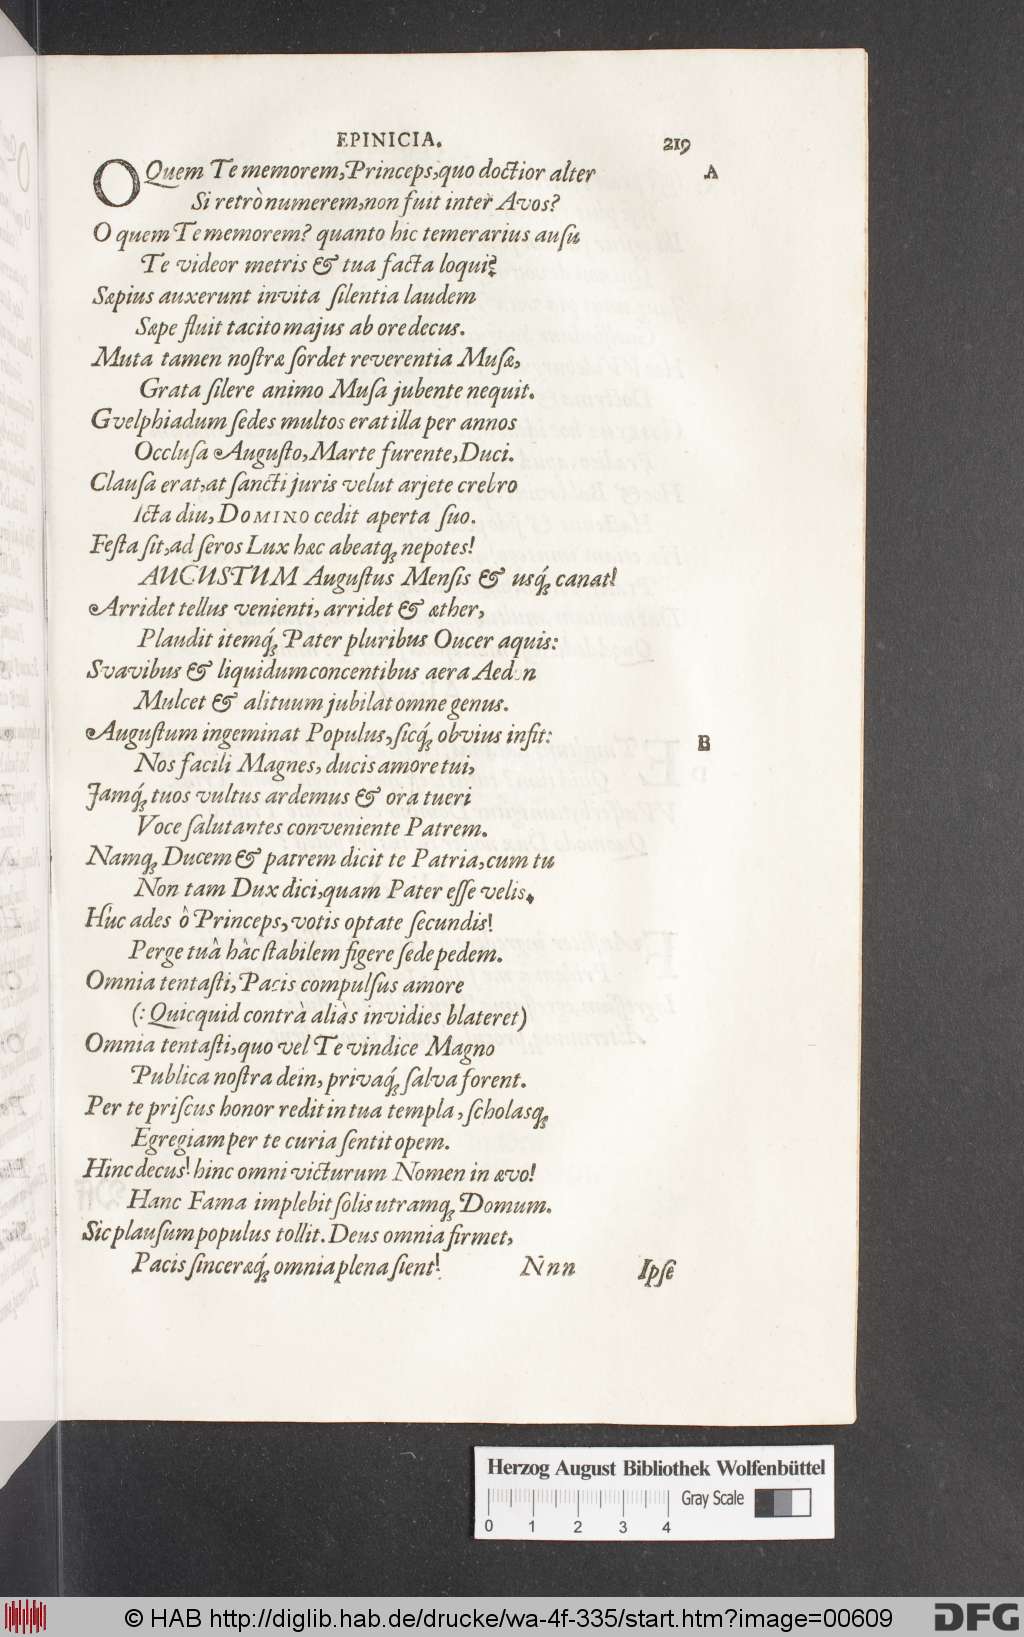 EPINICIA. 219
O Quem Te memorem, Princeps, quo doctior alter A
Si retrò numerem, non fuit inter Avos?
O quem Te memorem? quanto hic temerarius ausu
Te videor metris & tua facta loqui?
Sæpius auxerunt invita silentia laudem
Sæpe fluit tacito majus ab ore decus.
Muta tamen nostræ sordet reverentia Musæ,
Grata silere animo Musa jubente nequit.
Gvelphiadum sedes multos erat illa per annos
Occlusa Augusto, Marte furente, Duci.
Clausa erat, at sancti juris velut arjete crebro
Icta diu, DOMINO cedit aperta suo.
Festa sit, ad seros Lux hæc abeatq; nepotes!
AUGUSTUM Augustus Mensis & usq; canat!
Arridet tellus venienti, arridet & æther,
Plaudit itemq́; Pater pluribus Oucer aquis:
Svavibus & liquidum concentibus aera Aedon
Mulcet & alituum jubilat omne genus.
Augustum ingeminat Populus, sicq́; obvius infit: B
Nos facili Magnes, ducis amore tui,
Jamq́; tuos vultus ardemus & ora tueri
Voce salutantes conveniente Patrem.
Namq; Ducem & patrem dicit te Patria, cum tu
Non tam Dux dici, quam Pater esse velis.
Húc ades ô Princeps, votis optate secundis!
Perge tuâ hàc stabilem figere sede pedem.
Omnia tentasti, Pacis compulsus amore
(: Quicquid contrà aliàs invidies blateret)
Omnia tentasti, quo vel Te vindice Magno
Publica nostra dein, privaq́; salva forent.
Per te priscus honor redit in tua templa, scholasq;
Egregiam per te curia sentit opem.
Hinc decus! hinc omni victurum Nomen in ævo!
Hanc Fama implebit solis utramq; Domum.
Sic plausum populus tollit. Deus omnia firmet,
Pacis sinceræq́; omnia plena sient!
Nnn Ipse
Herzog August Bibliothek Wolfenbüttel
Gray Scale
0 1 2 3 4
© HAB http://diglib.hab.de/drucke/wa-4f-335/start.htm?image=00609
DFG